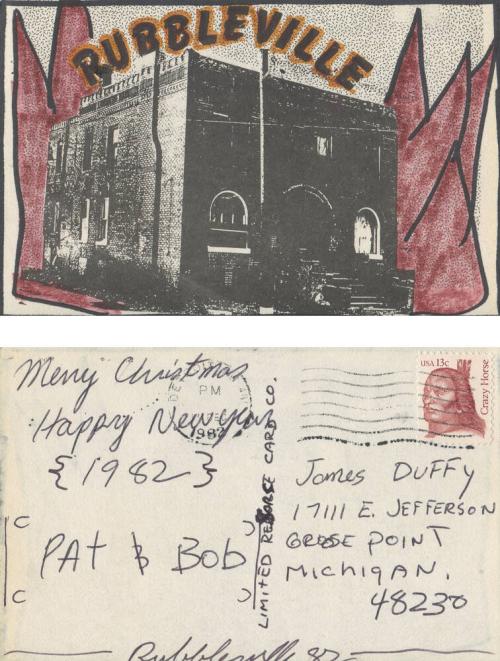 RUBBLEVILLE
Merry Christmas
Happy New Year
{1982}
PAT & BOB
LIMITED REMORSE CARD CO.
PM
1982
USA 13c
Crazy Horse
James DUFFY
17111 E. JEFFERSON
GROSE POINT
MICHIGAN.
48230
Rubblesville 82